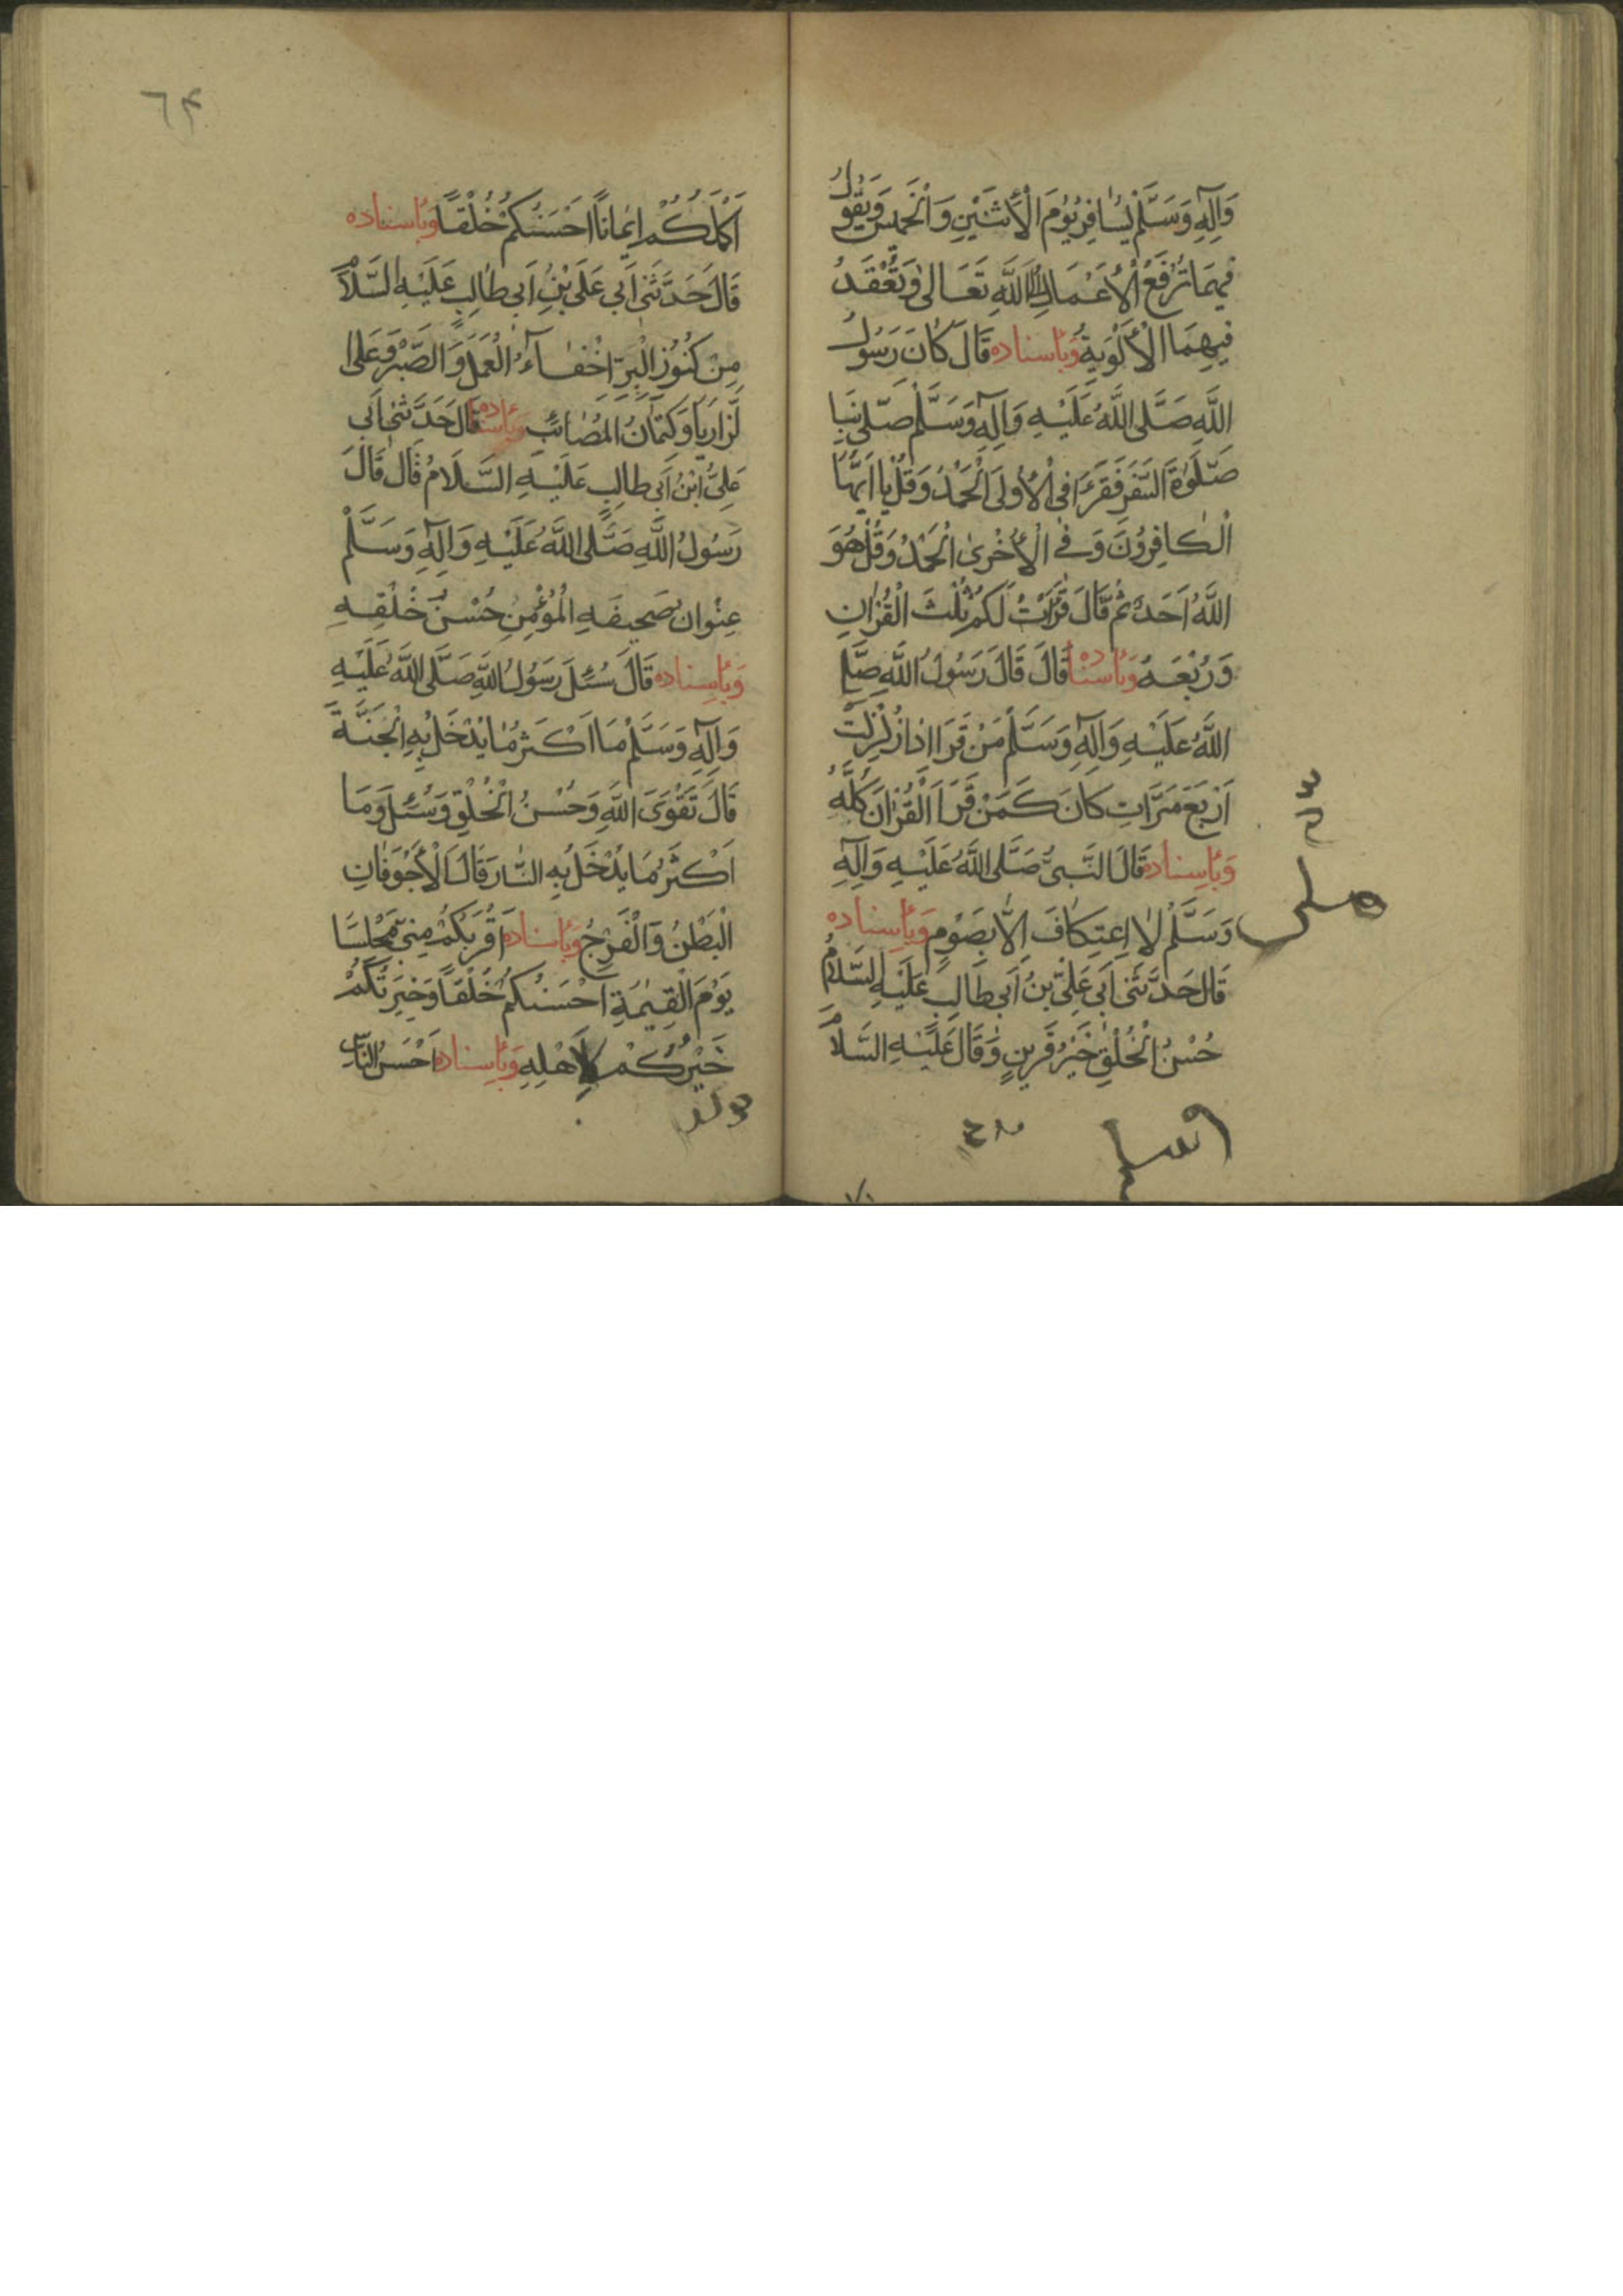 وَآلِهِ وَسَلَّمَ يُسَافِرُ يَوْمَ الْأَثْنَيْنِ وَالْخَمِيسَ وَيَقُولُ
فِيهِمَا تُرْفَعُ الْأَعْمَالُ إِلَى اللَّهِ تَعَالَى وَتُعْقَدُ
فِيهِمَا الْأَلْوِيَةُ وَبِأَسناده قَالَ كَانَ رَسُولُ
اللَّهِ صَلَّى اللَّهُ عَلَيْهِ وَآلِهِ وَسَلَّمَ صَلَّى بِنَا
صَلَوٰةَ السَّفَرِ فَقَرَءَ فِي الْأُولَى الْحَمْدُ وَقُلْ يَا أَيُّهَا
الْكَافِرُونَ وَفِي الْأُخْرَى الْحَمْدُ وَقُلْ هُوَ
اللَّهُ أَحَدٌ ثُمَّ قَالَ قَرَأْتُ لَكُمْ ثُلْثَ الْقُرْآنِ
وَرُبْعَهُ وَبِأَسناده قَالَ قَالَ رَسُولُ اللَّهِ صَلَّى
اللَّهُ عَلَيْهِ وَآلِهِ وَسَلَّمَ مَنْ قَرَأَ اذا زُلْزِلَتْ
أَرْبَعَ مَرَّاتٍ كَانَ كَمَنْ قَرَأَ الْقُرْآنَ كُلَّهُ
وَبِأَسناده قَالَ النَّبِيُّ صَلَّى اللَّهُ عَلَيْهِ وَآلِهِ
وَسَلَّمَ لَا اِعتِكَافَ إِلَّا بِصَوْمٍ وَبِأَسناده
قَالَ حَدَّثَنِي أَبِي عَلِيِّ بنُ أَبِي طَالِبٍ عَلَيْهِ السَّلَامُ
حُسْنُ الْخُلْقِ خَيْرُ قَرِينٍ وَقَالَ عَلَيْهِ السَّلَامُ
٦٤
أَكْمَلُكُمْ إِيمَاناً أَحْسَنُكُمْ خُلْقاً وَبِأَسناده
قَالَ حَدَّثَنِي أَبِي عَلَي بْنُ أَبِي طَالِبٍ عَلَيْهِ السَّلَامُ
مِنْ كُنُوزِ الْبِرِّ إِخْفَاءُ الْعَمَلِ وَالصَّبْرُ عَلَى
لرَّزَايَا وَكِتْمَانُ المَصَائِبِ وبأسناده قَالَ حَدَّثَنِي أَبِي
عَلِيُّ ابْنُ أَبِي طَالِبٍ عَلَيْهِ السَّلَامُ قَالَ قَالَ
رَسُولُ اللَّهِ صَلَّى اللَّهُ عَلَيْهِ وَآلِهِ وَسَلَّمَ
عِنْوان صَحِيفَهِ الْمُؤْمِنِ حُسْنُ خُلْقِهِ
وَبِأَسِناده قَالَ سُئِلَ رَسُولُ اللَّهِ صَلَّى اللَّهُ عَلَيْهِ
وَآلِهِ وَسَلَّمَ مَا أَكْثَرُ مَا يُدْخَلُ بِهِ الْجَنَّةَ
قَالَ تَقْوَى اللَّهِ وَحُسْنُ الْخُلْقِ وَسُئِلَ وَمَا
أَكْثَرُ مَا يُدْخَلُ بِهِ النَّار قَالَ الْأَجْوَفَانِ
الْبَطْنُ وَالْفَرْجُ وَبِأَسناده أَقْرَبُكُمْ مِنِّي مَجْلِسًا
يَوْمَ الْقِيٰمَةِ أَحْسَنُكُمْ خُلْقًا وَخَيْرُكُمْ
خَيْرُكُمْ لِأَهْلِهِ وَبِأَسِناده أَحْسَنُ النَّاسِ